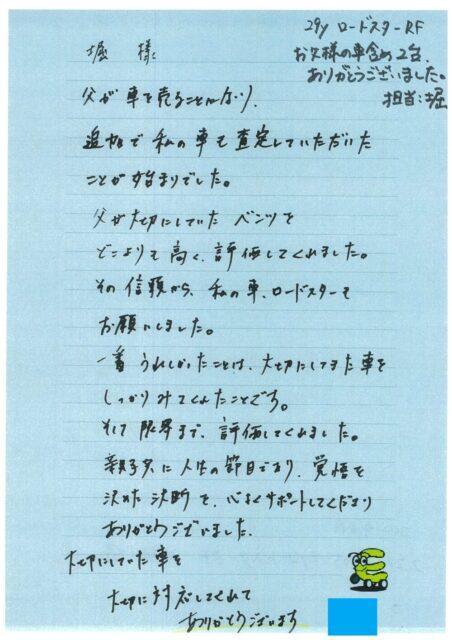 29y ロードスターRF
お父様の車含め2台、
ありがとうございました。
担当:堀
堀 様
父が車を売ることになり、
追加で私の車も査定していただいた
ことが始まりでした。
父が大切にしていたベンツを
どこよりも高く、評価してくれました。
その信頼から、私の車、ロードスターも
お願いしました。
一番うれしかったことは、大切にしてきた車を
しっかりみてくれたことです。
そして限界まで、評価してくれました。
親子共に人生の節目であり、覚悟を
決めた決断を、心よくサポートしてくださり
ありがとうございました。
大切にしていた車を
大切に対応してくれて
ありがとうございます